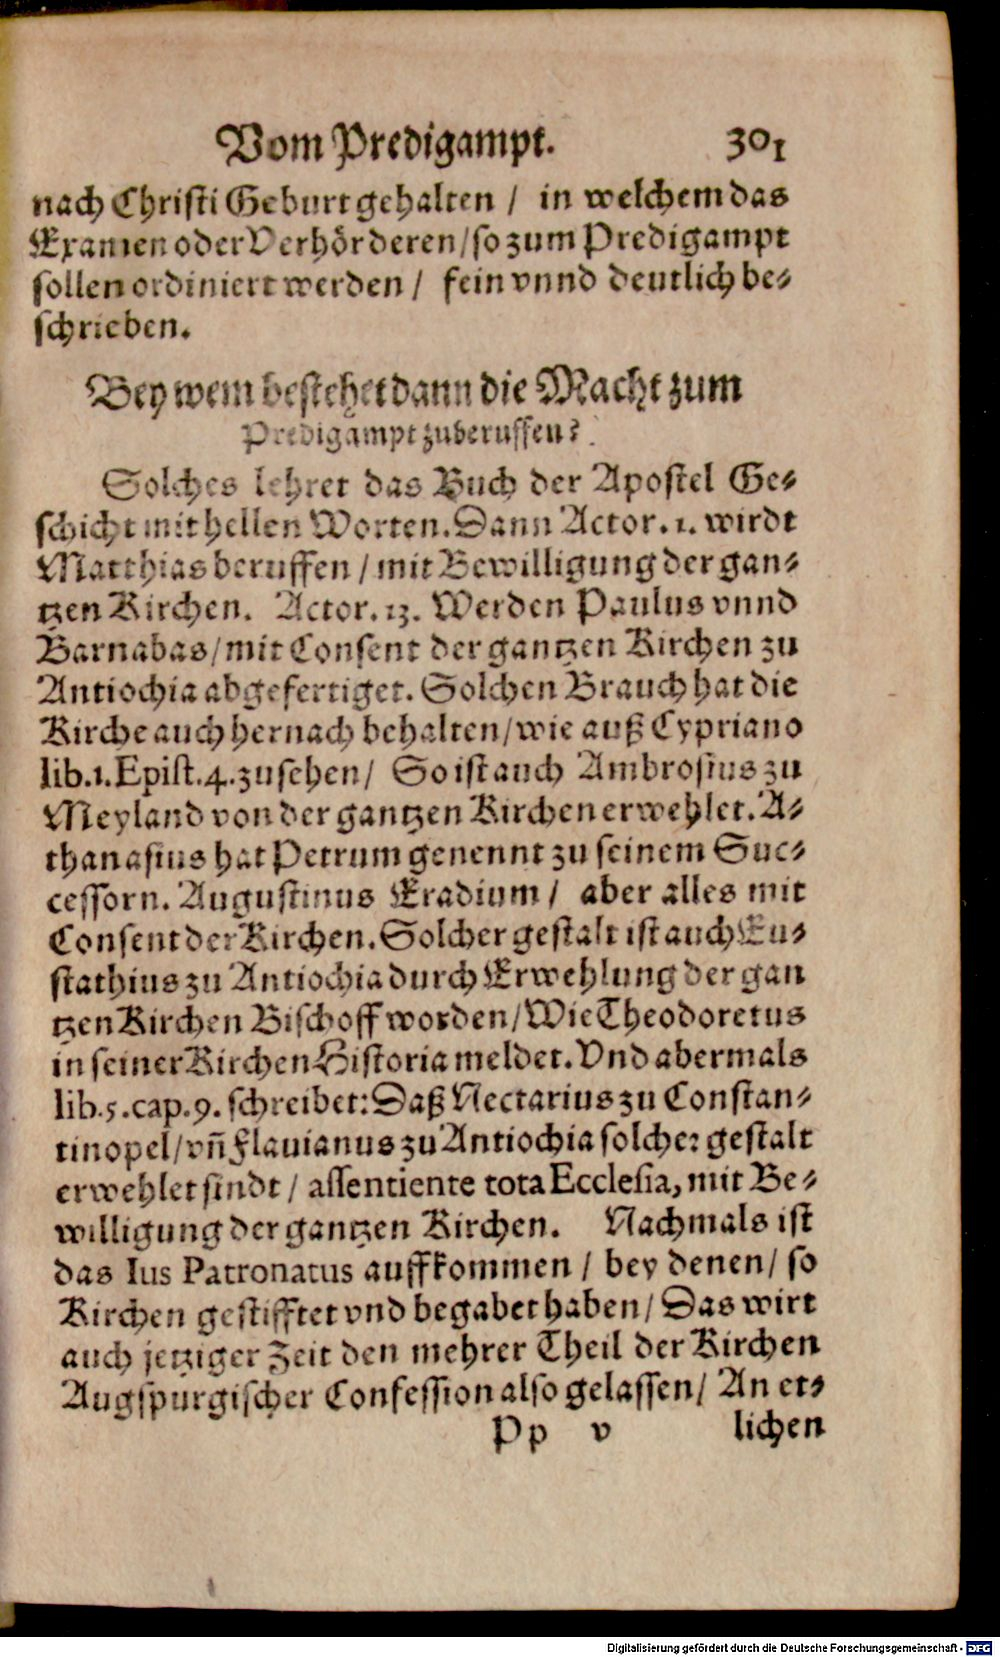 Vom Predigampt. 301
nach Christi Geburt gehalten / in welchem das
Examen oder Verhör deren / so zum Predigampt
sollen ordiniert werden / fein vnnd deutlich be-
schrieben.
Bey wem bestehet dann die Macht zum
Predigampt zuberuffen?
Solches lehret das Buch der Apostel Ge-
schicht mit hellen Worten. Dann Actor. 1. wirdt
Matthias beruffen / mit Bewilligung der gan-
tzen Kirchen. Actor. 13. Werden Paulus vnnd
Barnabas / mit Consent der gantzen Kirchen zu
Antiochia abgefertiget. Solchen Brauch hat die
Kirche auch hernach behalten / wie auß Cypriano
lib. 1. Epist. 4. zusehen / So ist auch Ambrosius zu
Meyland von der gantzen Kirchen erwehlet. A-
thanasius hat Petrum genennt zu seinem Suc-
cessorn. Augustinus Eradium / aber alles mit
Consent der Kirchen. Solcher gestalt ist auch Eu-
stathius zu Antiochia durch Erwehlung der gan
tzen Kirchen Bischoff worden / Wie Theodoretus
in seiner Kirchen Historia meldet. Vnd abermals
lib. 5. cap. 9. schreibet: Daß Nectarius zu Constan-
tinopel / vñ Flauianus zu Antiochia solcher gestalt
erwehlet sindt / assentiente tota Ecclesia, mit Be-
willigung der gantzen Kirchen. Nachmals ist
das Ius Patronatus auffkommen / bey denen / so
Kirchen gestifftet vnd begabet haben / Das wirt
auch jetziger Zeit den mehrer Theil der Kirchen
Augspurgischer Confession also gelassen / An et-
Pp v lichen
Digitalisierung gefördert durch die Deutsche Forschungsgemeinschaft - DFG